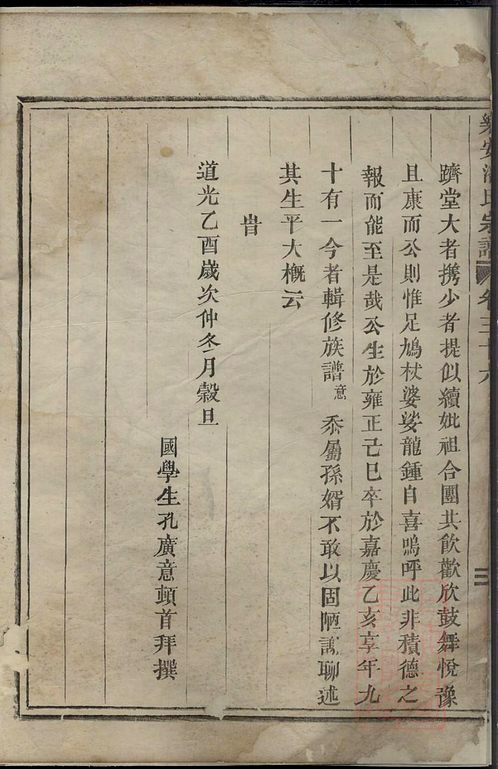 躋堂大者携少者提似續妣祖合團共飲歡欣鼓舞悅豫
且康而公則惟足鳩杖婆娑龍鍾自喜嗚呼此非積德之
報而能至是哉公生於雍正己巳卒於嘉慶乙亥享年九
十有一今者輯修族譜意忝屬孫婿不敢以固陋辭聊述
其生平大槪云
旹
道光乙酉歲次仲冬月穀旦
國學生孔廣意頓首拜撰
氏宗譜 卷三十六
三